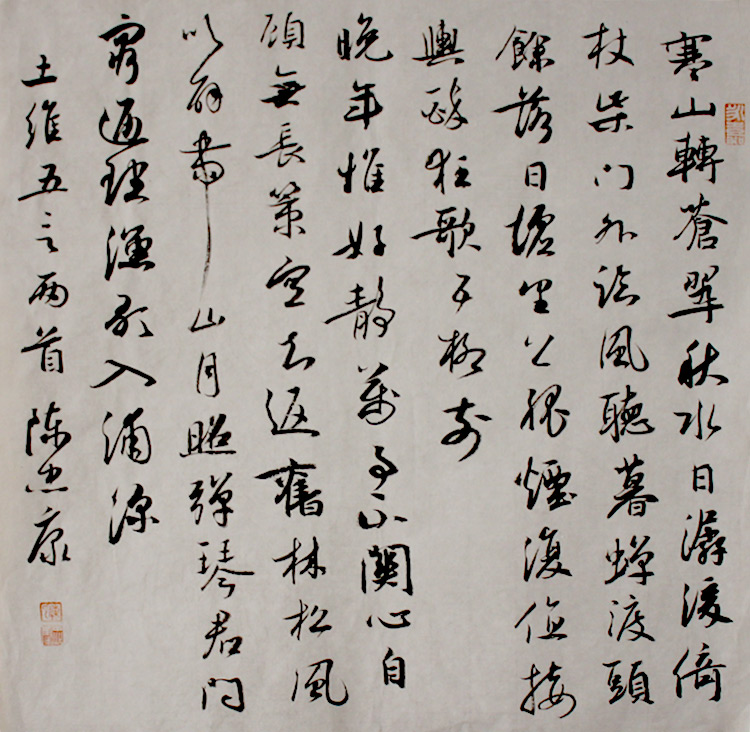 寒山轉蒼翠秋水日潺湲倚
杖柴門外臨風聽暮蟬渡頭
餘落日墟里上孤煙復值接
輿醉狂歌五柳前
晚年惟好靜萬事不關心自
顧無長策空知返舊林松風
吹解帶山月照彈琴君問
窮通理漁歌入浦深
王維五言兩首陈忠康